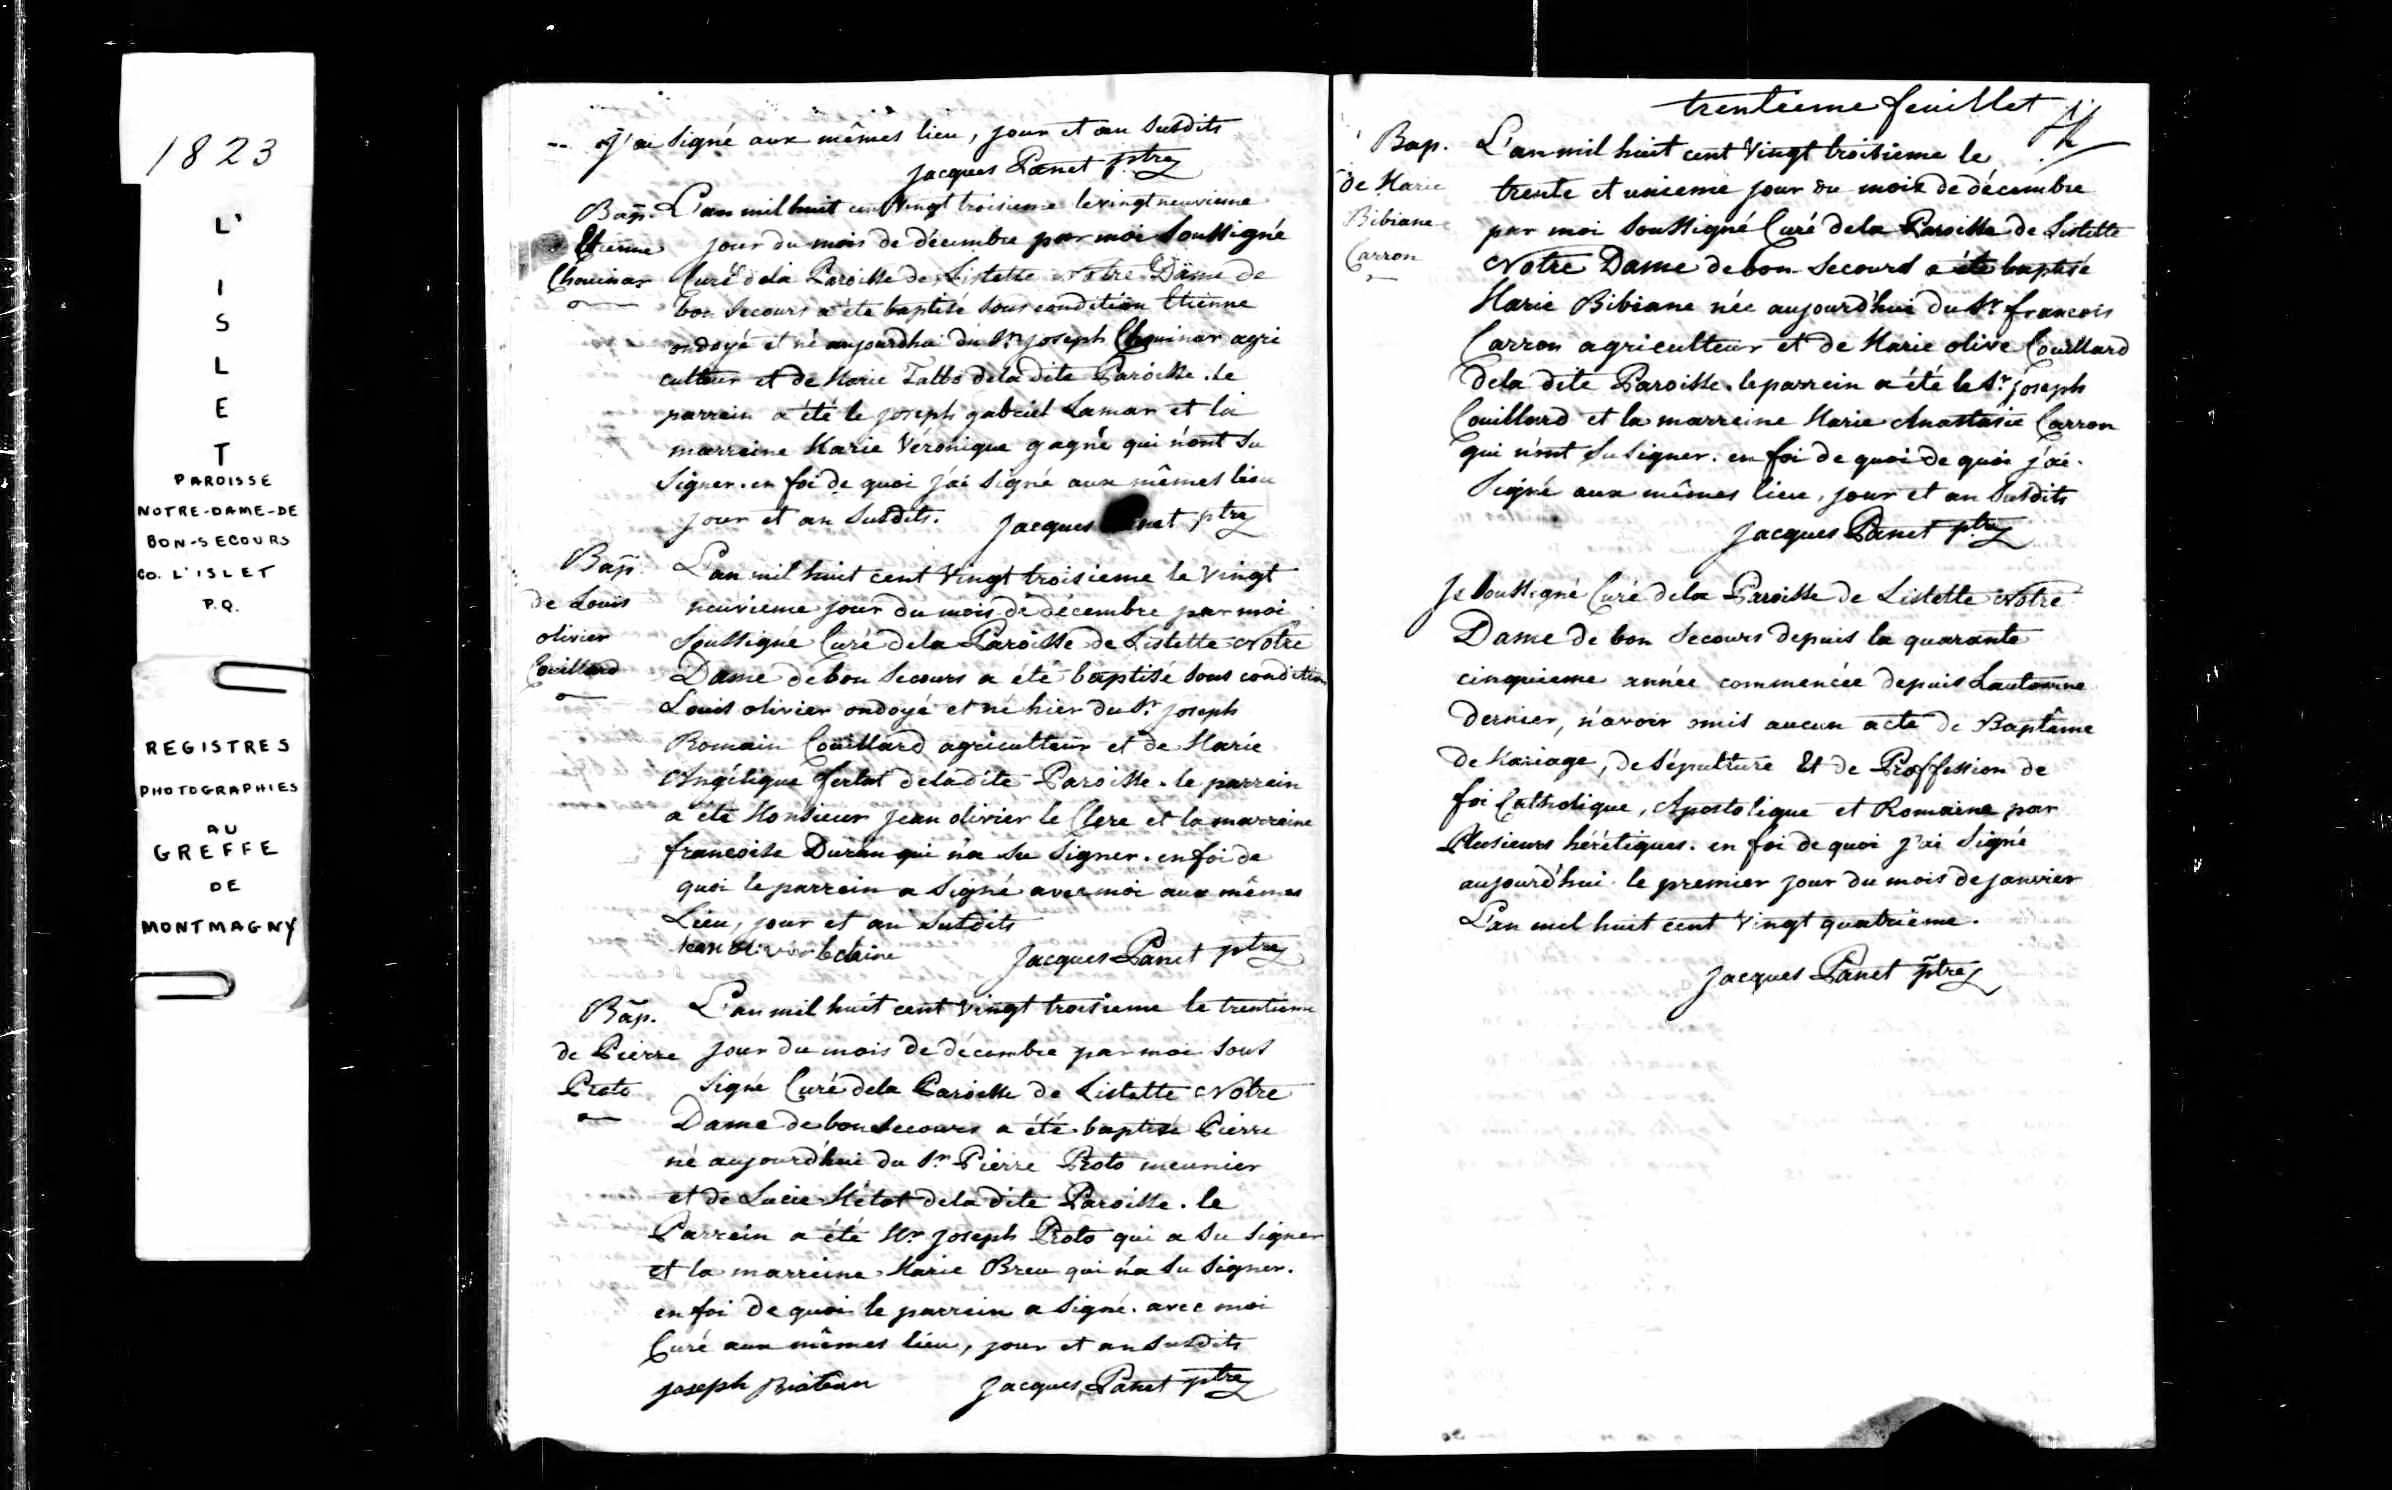 1823
L'
I
S
L
E
T
PAROISSE
NOTRE-DAME-DE
BON-SECOURS
CO. L'ISLET
P.Q.
REGISTRES
PHOTOGRAPHIES
AU
GREFFE
DE
MONTMAGNY
j'ai signé aux mêmes lieu, jour et an susdits
Jacques Panet ptre
Bap. L'an mil huit cent vingt troisieme le vingt neuvieme
Etienne jour du mois de décembre par moi soussigné
Chouinar Curé dela Paroisse de Lislette Notre Dame de
bon secours a été baptisé sous condition Etienne
ondoyé et né aujourdhui du Sr joseph Chouinar agri
culteur et de Marie Talbo dela dite Paroisse. le
parrein a été le joseph gabriel Lamar et la
marreine Marie Véronique gagné qui n'ont su
signer. en foi de quoi j'ai signé aux mêmes lieu
jour et an susdits. Jacques Panet ptre
Bap L'an mil huit cent vingt troisieme le vingt
de Louis neuvieme jour du mois de décembre par moi
olivier soussigné Curé dela Paroisse de Lislette Notre
Couillard Dame de bon secours a été baptisé sous condition
Louis olivier ondoyé et né hier du Sr joseph
Romain Couillard agriculteur et de Marie
Angélique fertat dela dite Paroisse. le parrein
a été Monsieur jean olivier le Clerc et la marreine
francoise Duran qui n'a su signer. en foi de
quoi le parrein a signé avec moi aux mêmes
Lieu, jour et an susdits
Jean Olivier leclaire Jacques Panet ptre
Bap. L'an mil huit cent vingt troisieme le trentieme
de Pierre jour du mois de décembre par moi sous
Proto signé Curé dela Paroisse de Lislette Notre
Dame de bon secours a été baptisé Pierre
né aujourd'hui du Sr Pierre Proto meunier
et de Lucie Métot dela dite Paroisse. le
Parrein a été Mr joseph Proto qui a su signer
et la marreine Marie Breu qui n'a su signer.
en foi de quoi le parrein a signé avec moi
Curé aux mêmes lieu, jour et an susdits
joseph Jacques Panet ptre
trentieme feuillet
Bap. L'an mil huit cent vingt troisieme le
de Marie trente et unieme jour du mois de décembre
Bibiane par moi soussigné Curé dela Paroisse de Lislette
Carron Notre Dame de bon secours a été baptisé
Marie Bibiane née aujourd'hui du Sr francois
Carron agriculteur et de Marie olive Couillard
dela dite Paroisse. le parrein a été le Sr joseph
Couillard et la marreine Marie Anastasie Carron
qui n'ont su signer. en foi de quoi de quoi j'ai
signé aux mêmes lieu, jour et an susdits
Jacques Panet ptre
Je soussigné Curé dela Paroisse de Lislette Notre
Dame de bon secours depuis la quarante
cinquieme année commencée depuis Lautomne
dernier, n'avoir omis aucun acte de Baptême
de Mariage, de Sépulture Et de Proffession de
foi Catholique, Apostolique et Romaine par
Plusieurs hérétiques. en foi de quoi j'ai signé
aujourd'hui le premier jour du mois de janvier
L'an mil huit cent vingt quatrieme.
Jacques Panet ptre